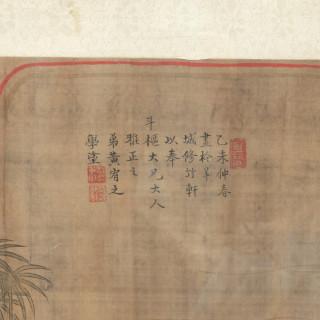 乙未仲春
畫於羊
城修竹軒
以奉
斗樞大兄大人
雅正之
弟黃脊之
學堂